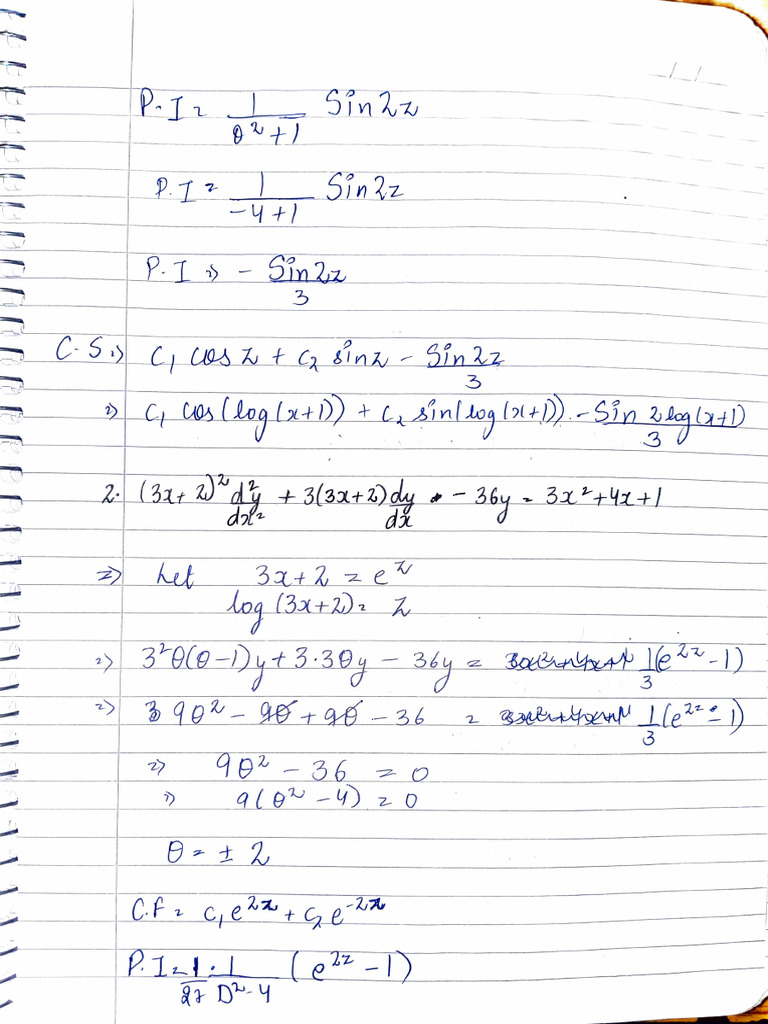 P.I = 1/(θ²+1) Sin2z
P.I = 1/(-4+1) Sin2z
P.I ⇒ - Sin2z/3
C.S ⇒ C₁ cos z + C₂ sinz - Sin2z/3
⇒ C₁ cos(log(x+1)) + C₂ sin(log(x+1)) - Sin 2log(x+1)/3
2. (3x+2)² d²y/dx² + 3(3x+2) dy/dx - 36y = 3x²+4x+1
⇒ Let 3x+2 = e^z
log(3x+2) = z
⇒ 3²θ(θ-1)y + 3·3θy - 36y = 1/3(e^2z - 1)
⇒ 9θ² - 9θ + 9θ - 36 = 1/3(e^2z - 1)
⇒ 9θ² - 36 = 0
⇒ 9(θ² - 4) = 0
θ = ± 2
C.F = C₁e^2z + C₂e^-2z
P.I = 1/27 · 1/(D²-4) (e^2z - 1)